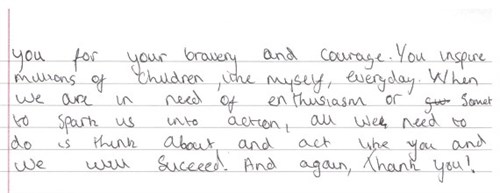 you for your bravery and courage. You inspire
millions of children, like myself, everyday. When
we are in need of enthusiasm or
to spark us into action, all we need to
do is think about and act like you and
we will succeed! And again, thank you!